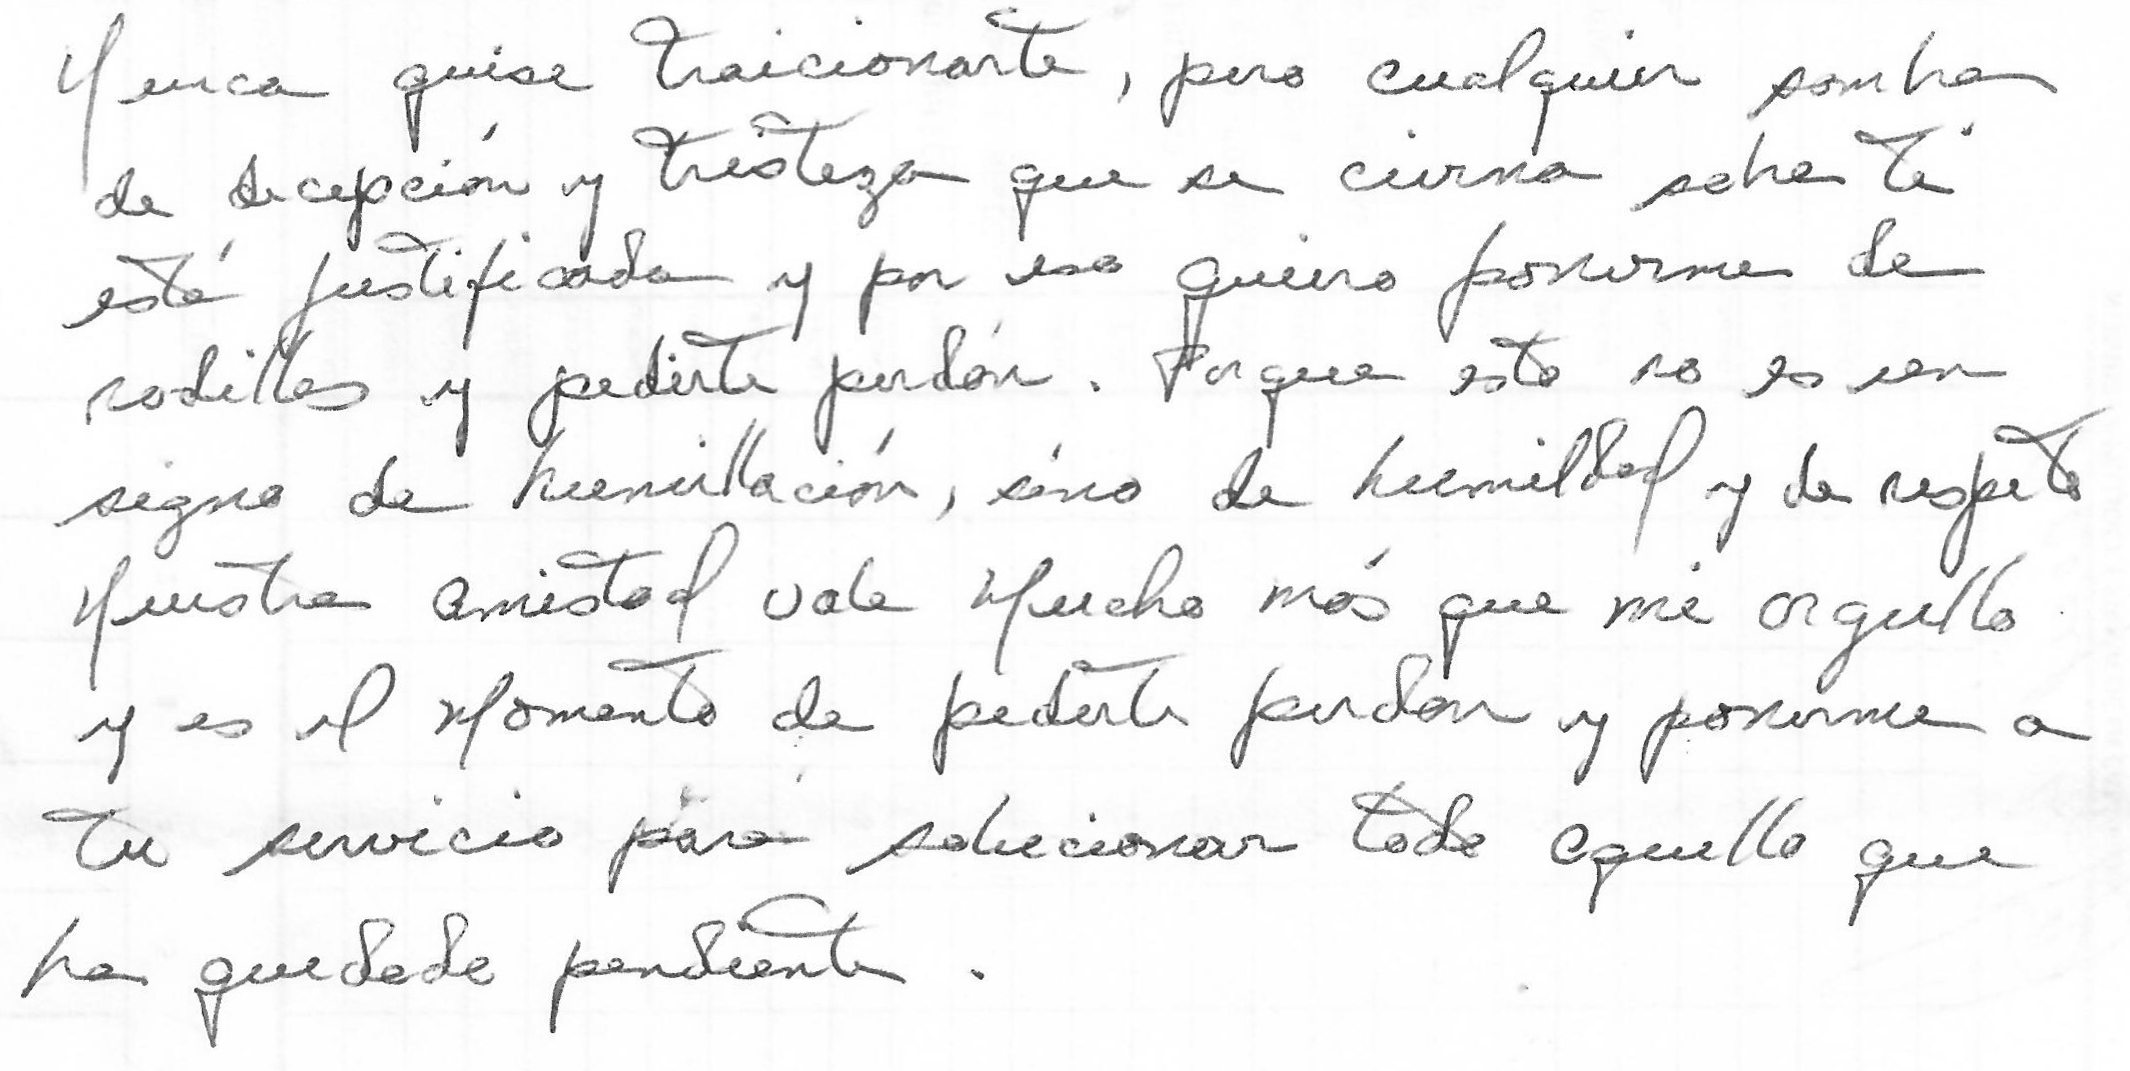 Nunca quise traicionarte, pero cualquier sombra
de decepción y tristeza que se cierna sobre ti
esté justificada y por eso quiero ponerme de
rodillas y pedirte perdón. Porque esto no es un
signo de humillación, sino de humildad y de respeto
Nuestra amistad vale mucho más que mi orgullo
y es el momento de pedirte perdón y ponerme a
tu servicio para solucionar todo aquello que
ha quedado pendiente.